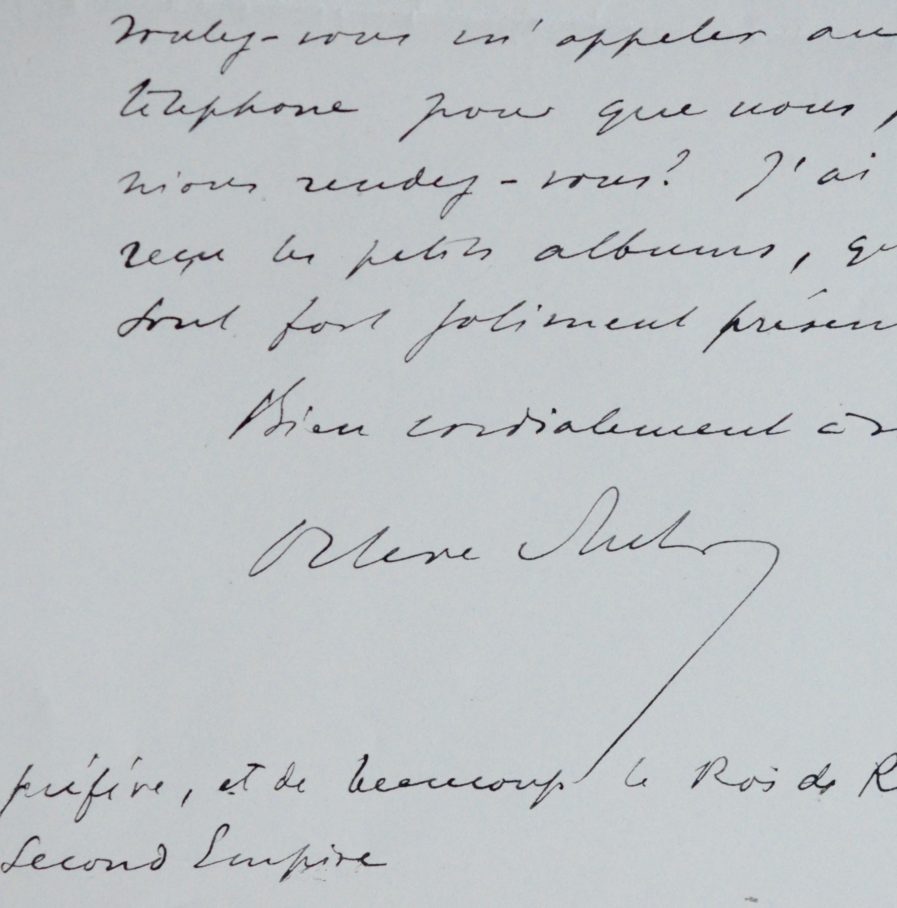 voulez-vous m'appeler au
téléphone pour que nous
nions rendez-vous? J'ai
reçu les petits albums, qu
sont fort joliment présen
Bien cordialement à v
Octave Aubry
préfère, et de beaucoup le Roi de R
Second Empire